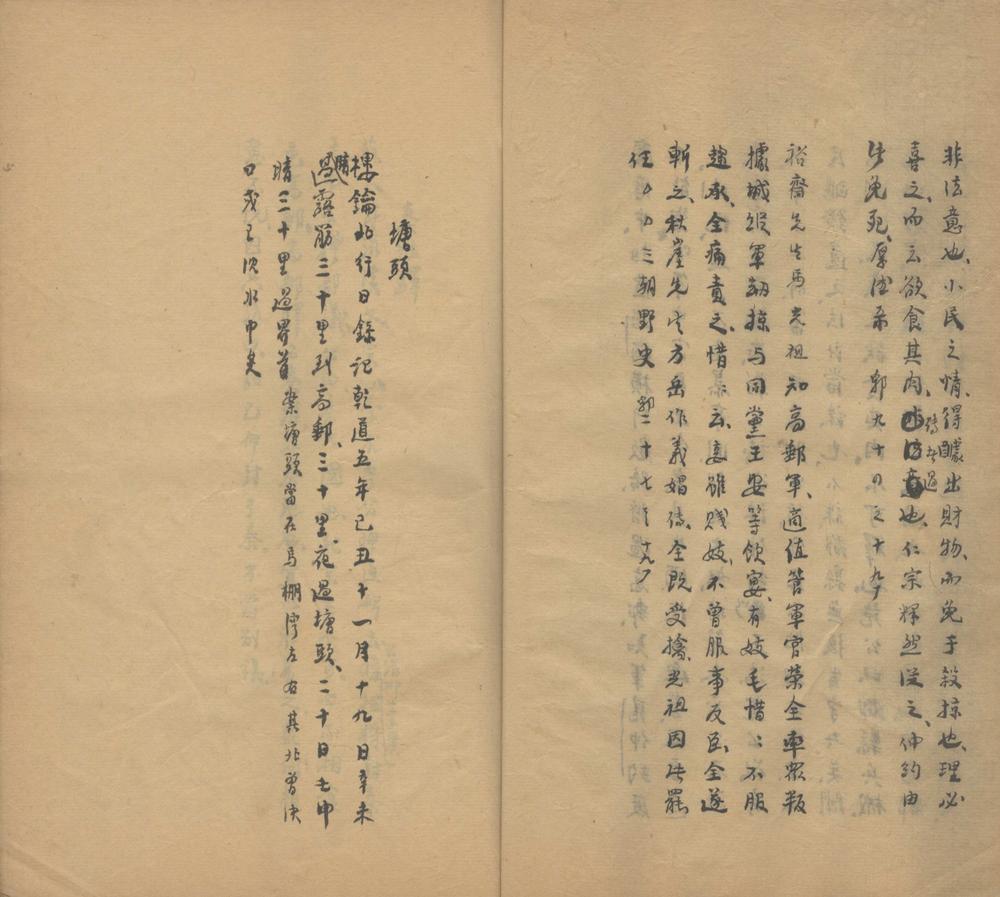 非法意也、小民之情、得醵出財物、而免于殺掠也、理必
喜之、而云欲食其肉、傳者過也、仁宗釋然從之、仲約由
此免死、厚德
裕齋先生馬光祖知高郵軍、適值管軍官榮全率眾叛
據城、縱軍劫掠、与同黨王安等飲宴、有妓毛惜惜不服
趨承、全痛責之、惜惜云、妾雖賤妓、不曾服事反臣、全遂
斬之、秋崖先生方岳作義娼傳、全既受擒、光祖因此罷
任
三朝野史
塘頭
樓鑰北行日錄記乾道五年己丑十一月十九日辛未
晴過露筋三十里到高郵、三十里、夜過塘頭、二十日壬申
晴三十里過界首 案塘頭當在馬棚灣左右其北曾決
口 水中矣